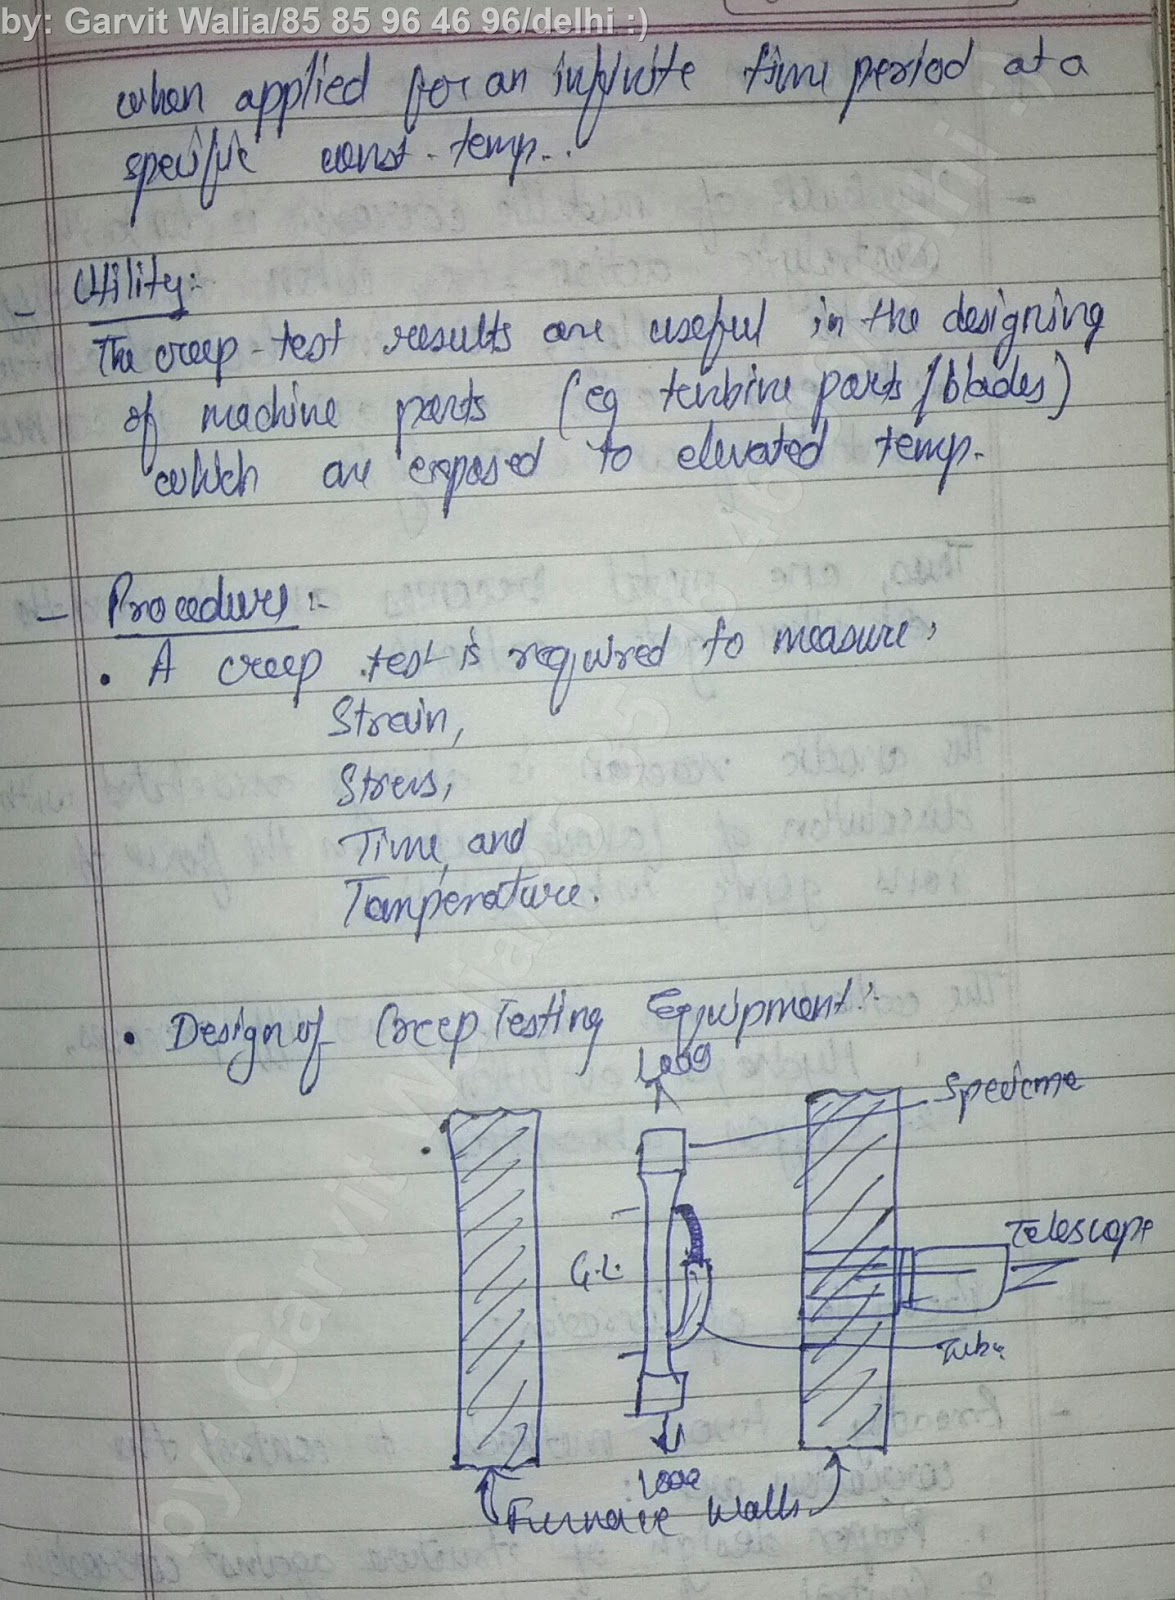 by: Garvit Walia/85 85 96 46 96/delhi :)
when applied for an infinite time period at a
specific const. temp..
- Utility:-
The creep-test results are useful in the designing
of machine parts (eg turbine parts/blades)
which are exposed to elevated temp.
- Procedure:-
• A creep test is required to measure,
Strain,
Stress,
Time, and
Temperature.
• Design of Creep Testing Equipment:-
Load
Specime
Telescope
G.L.
Tube
Load
Furnace Walls